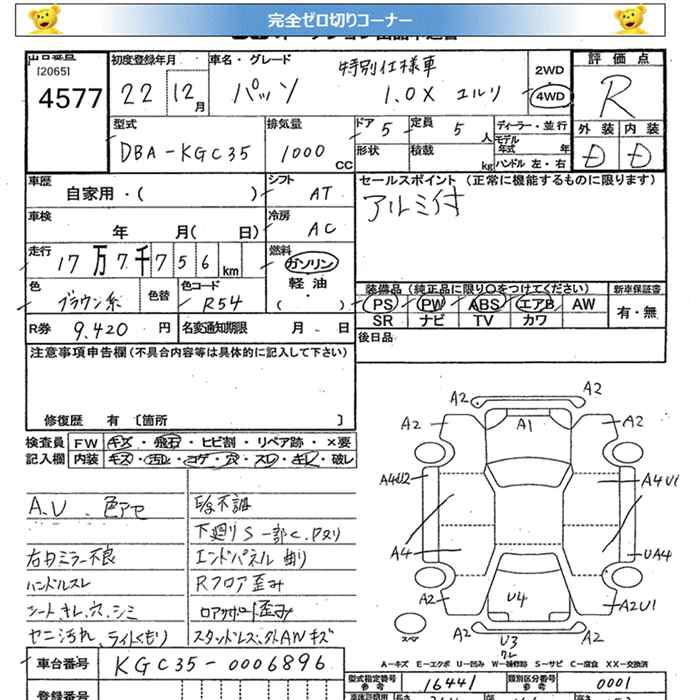 完全ゼロ切りコーナー
[2065]
4577
初度登録年月
22 12月
車名・グレード
特別仕様車
パッソ 1.0X
2WD
4WD
評価点
R
外装 内装
D D
型式
DBA-KGC35
排気量
1000 CC
ドア 5
定員 5人
形状
積載 kg
ディーラー・並行
モデル年式 年
ハンドル 左・右
車歴
自家用・( )
シフト AT
セールスポイント (正常に機能するものに限ります)
アルミ付
車検
年 月( 日)
冷房 AC
走行
17万7千756km
燃料
ガソリン
軽油
( )
色
ブラウン系
色替
色コード
R54
装備品 (純正品に限り〇をつけてください)
新車保証書
PS PW ABS エアB AW
SR ナビ TV カワ
有・無
R券 9,420 円
名変通知期限 月 日
後日品
注意事項申告欄(不具合内容等は具体的に記入して下さい)
修復歴 有 〔箇所 〕
検査員記入欄
FW キズ・飛石・ヒビ割・リペア跡・×要
内装 キズ・汚れ・コゲ・穴・スレ・キレ・破レ
A.U 色アセ
右Dミラー不良
ハンドルスレ
シート キレ、穴、シミ
ヤニ汚れ、ライトくもり
下廻りS 一部C、Pヌリ
エンドパネル 曲り
Rフロア歪み
スタッドレス、
A2 A2
A2 A1 A2
A4U2 A4U1
A4 UA4
A2 U4 A2U1
スペア
U3
A2
A…キズ E…エクボ U…凹み W…補修跡 S…サビ C…腐食 XX…交換済
車台番号 KGC35-0006896
登録番号
型式指定番号 参考 16441
類別区分番号 参考 0001